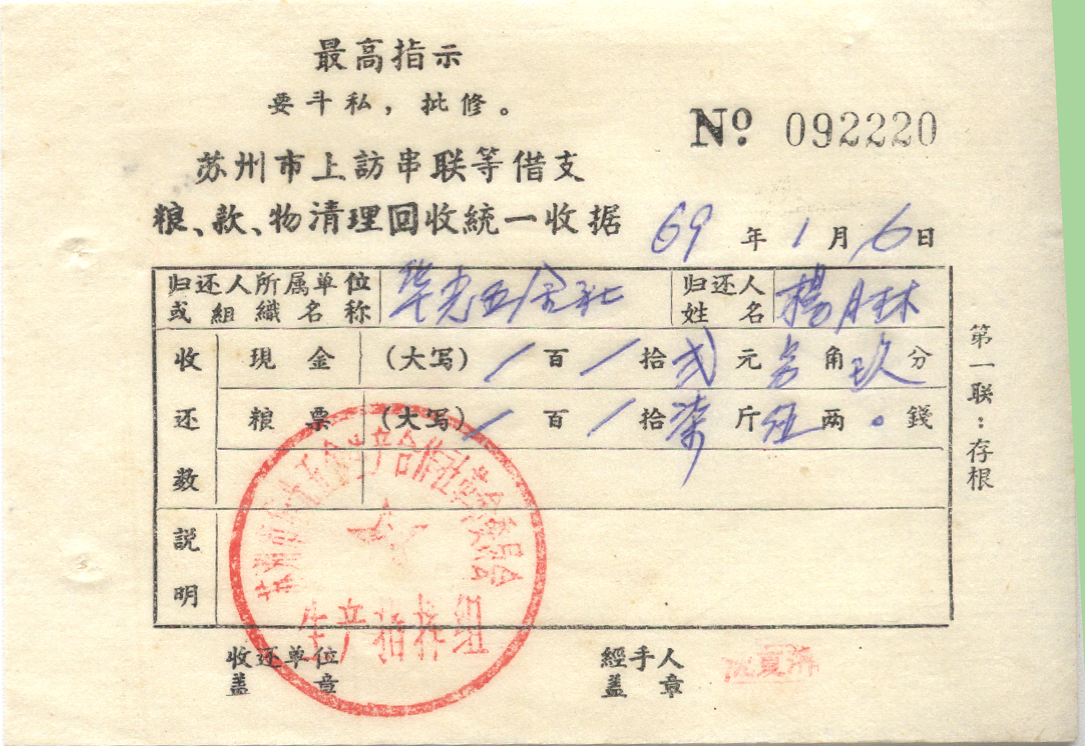 最高指示
要斗私，批修。
№ 092220
苏州市上訪串联等借支
粮、款、物清理回收統一收据
69年1月6日
归还人所属单位或組織名称 华光五金社 归还人姓名 楊月林
收还数 現金 (大写) / 百 / 拾 弍 元 角 玖 分
粮票 (大写) / 百 / 拾 柒 斤 伍 两 。 錢
説明
第一联：存根
生产指挥组
收还单位盖章
經手人盖章